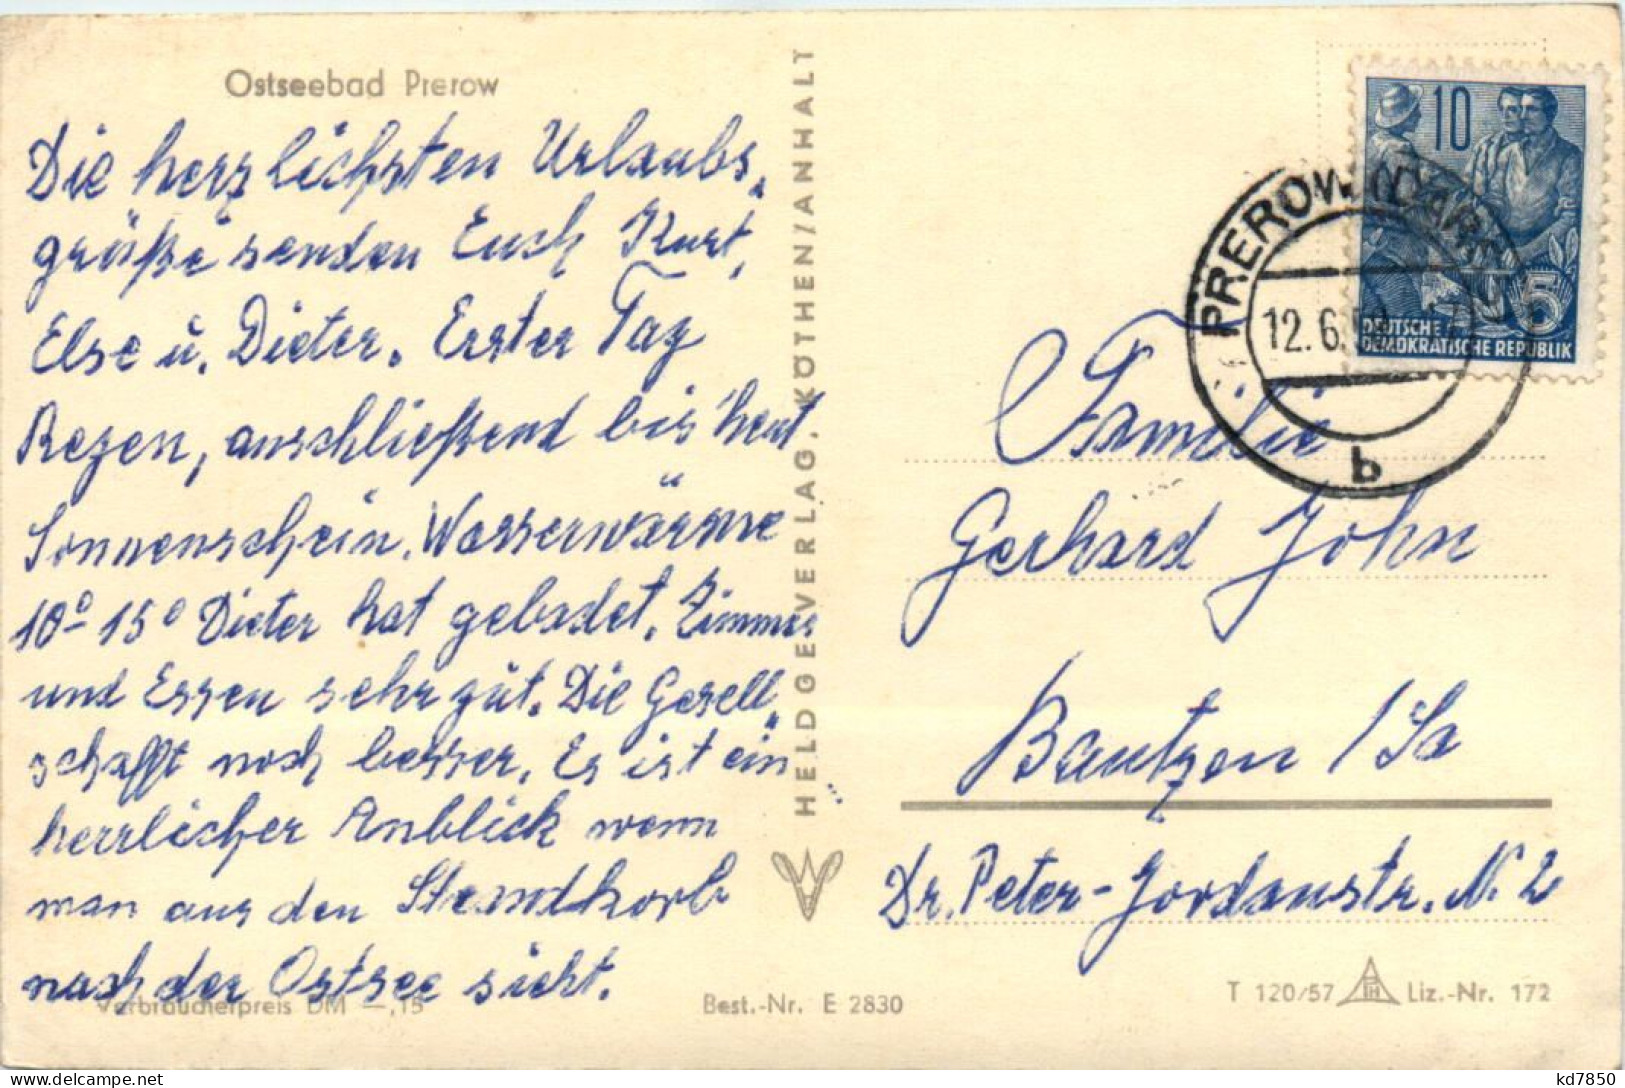 Ostseebad Prerow
Die herzlichsten Urlaubs„
grüße senden Euch Kurt,
Else u. Dieter. Erster Tag
Regen, anschließend bis heut
Sonnenschein. Wasserwärme
10°-15° Dieter hat gebadet. Zimmer
und Essen sehr gut. Die Gesell„
schafft noch besser. Es ist ein
herrlicher Anblick wenn
man aus den Strandkorb
nach der Ostsee sieht.
Verbraucherpreis DM —,15
Best.-Nr. E 2830
HELDGE-VERLAG, KÖTHEN/ANHALT
10
5
DEUTSCHE
DEMOKRATISCHE REPUBLIK
PEROW
12.6.
b
Familie
Gerhard John
Bautzen /Sa
Dr. Peter-Jordanstr. N. 2
T 120/57 Liz.-Nr. 172
kd7850